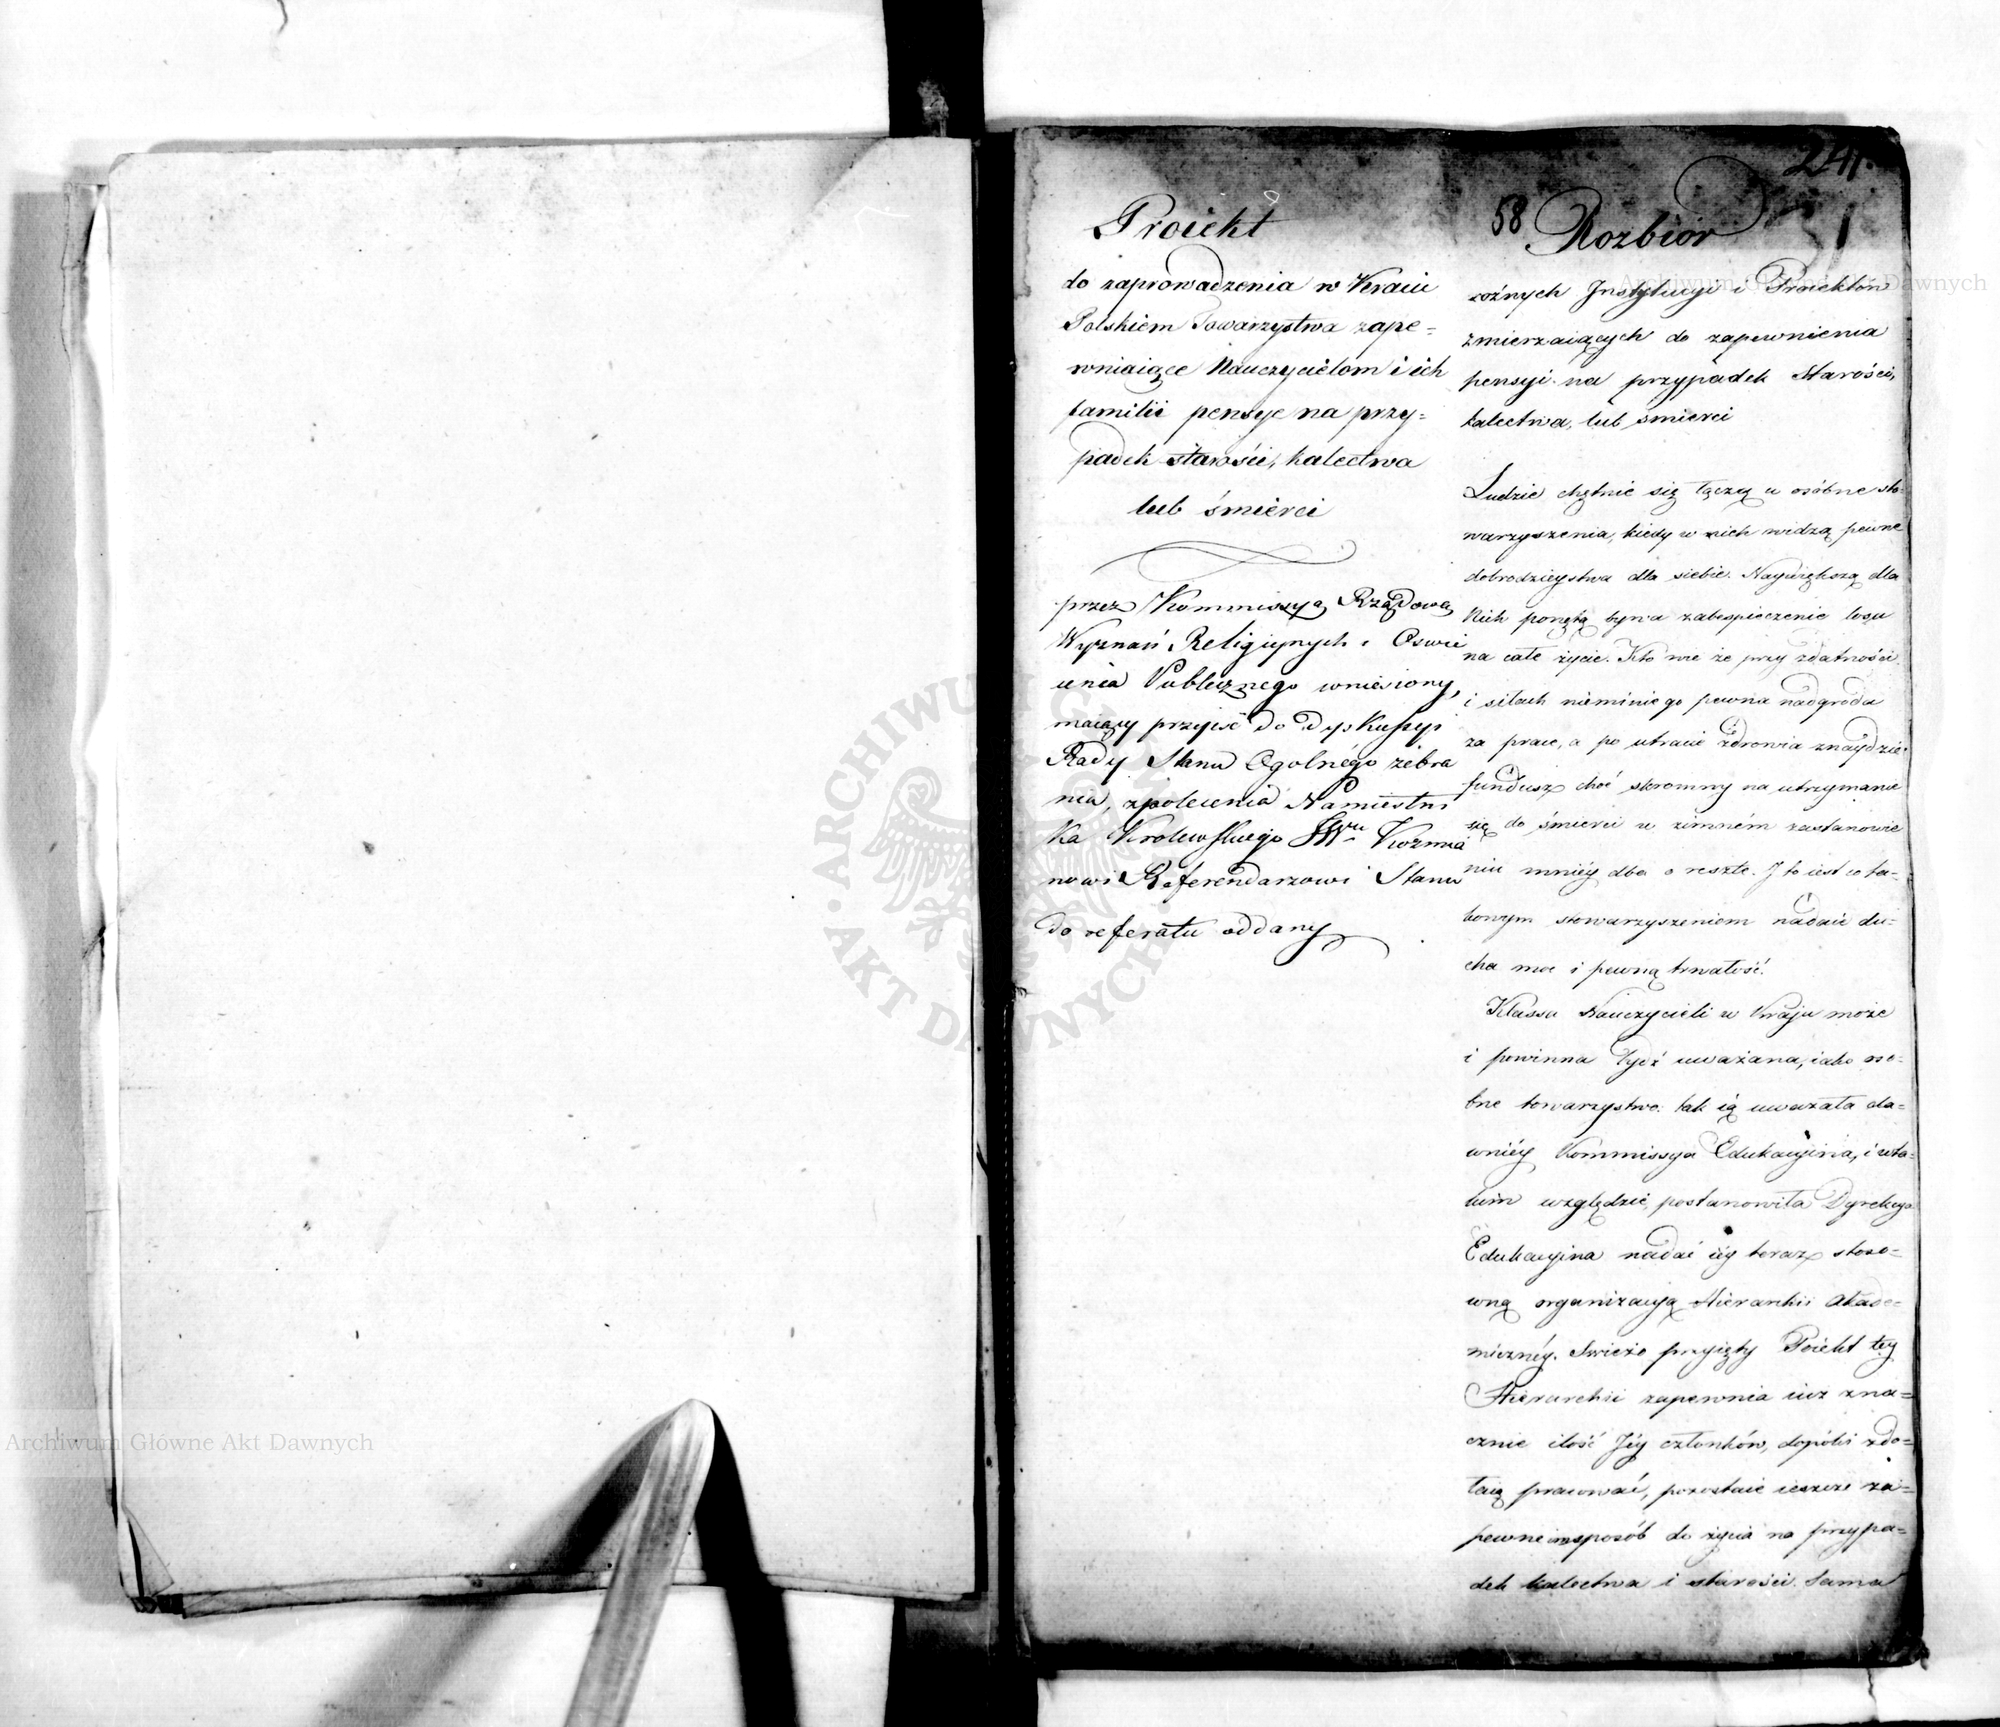 241.
Proiekt
do zaprowadzenia w Kraiu
Polskiem Towarzystwa zape=
wniaiące Nauczycielom i ich
familii pensye na przy=
padek starości, kalectwa
lub śmierci
przez Kommissyą Rządową
Wyznań Religiynych i Oswie
cenia Publicznego wniesiony,
maiący przyiść do Dyskussyi
Rady Stanu Ogolnégo zebra
nia, zpolecenia Namiestni
ka Krolewskiego JWu Kozmia
nowi Referendarzowi Stanu
do referatu oddany
58 Rozbiór
rożnych Instytucyi i Proiektów
zmierzaiących do zapewnienia
pensyi na przypadek Starości,
kalectwa, lub śmierci
Ludzie chętnie się łączą w osóbne sto-
warzyszenia, kiedy w nich widzą pewne
dobrodzieystwa dla siebie. Naywiększą dla
Nich ponętą bywa zabespieczenie losu
na całe życie. Kto wie że przy zdatności
i siłach nieminie go pewna nadgroda
za prace, a po utracie zdrowia znaydzie
fundusz choć skromny na utrzymanie
się do śmierci w zimném zastanowie
niu mniéy dba o resztę. I to iest co ta-
kowym stowarzyszeniem nadaie du-
cha moc i pewną trwałość.
Klassa Nauczycieli w Kraju może
i powinna bydź uważana, iako oso-
bne towarzystwo: tak ią uważała da=
wniéy Kommissya Edukacyina, i w ta-
kim względzie, postanowiła Dyrekcya
Edukacyina nadać iéy teraz stoso=
wną organizacyą Hierarchii Akade=
micznéy. Swieżo przyięty Proiekt téy
Hierarchii zapewnia iuż zna=
cznie ilość Jéy członków, dopóki zdo=
łaią pracować, pozostaie ieszcze za=
pewne im sposób do życia na przypa=
dek kalectwa i starości. Sama
Archiwum Główne Akt Dawnych
Archiwum Główne Akt Dawnych
ARCHIWUM GŁÓWNE AKT DAWNYCH